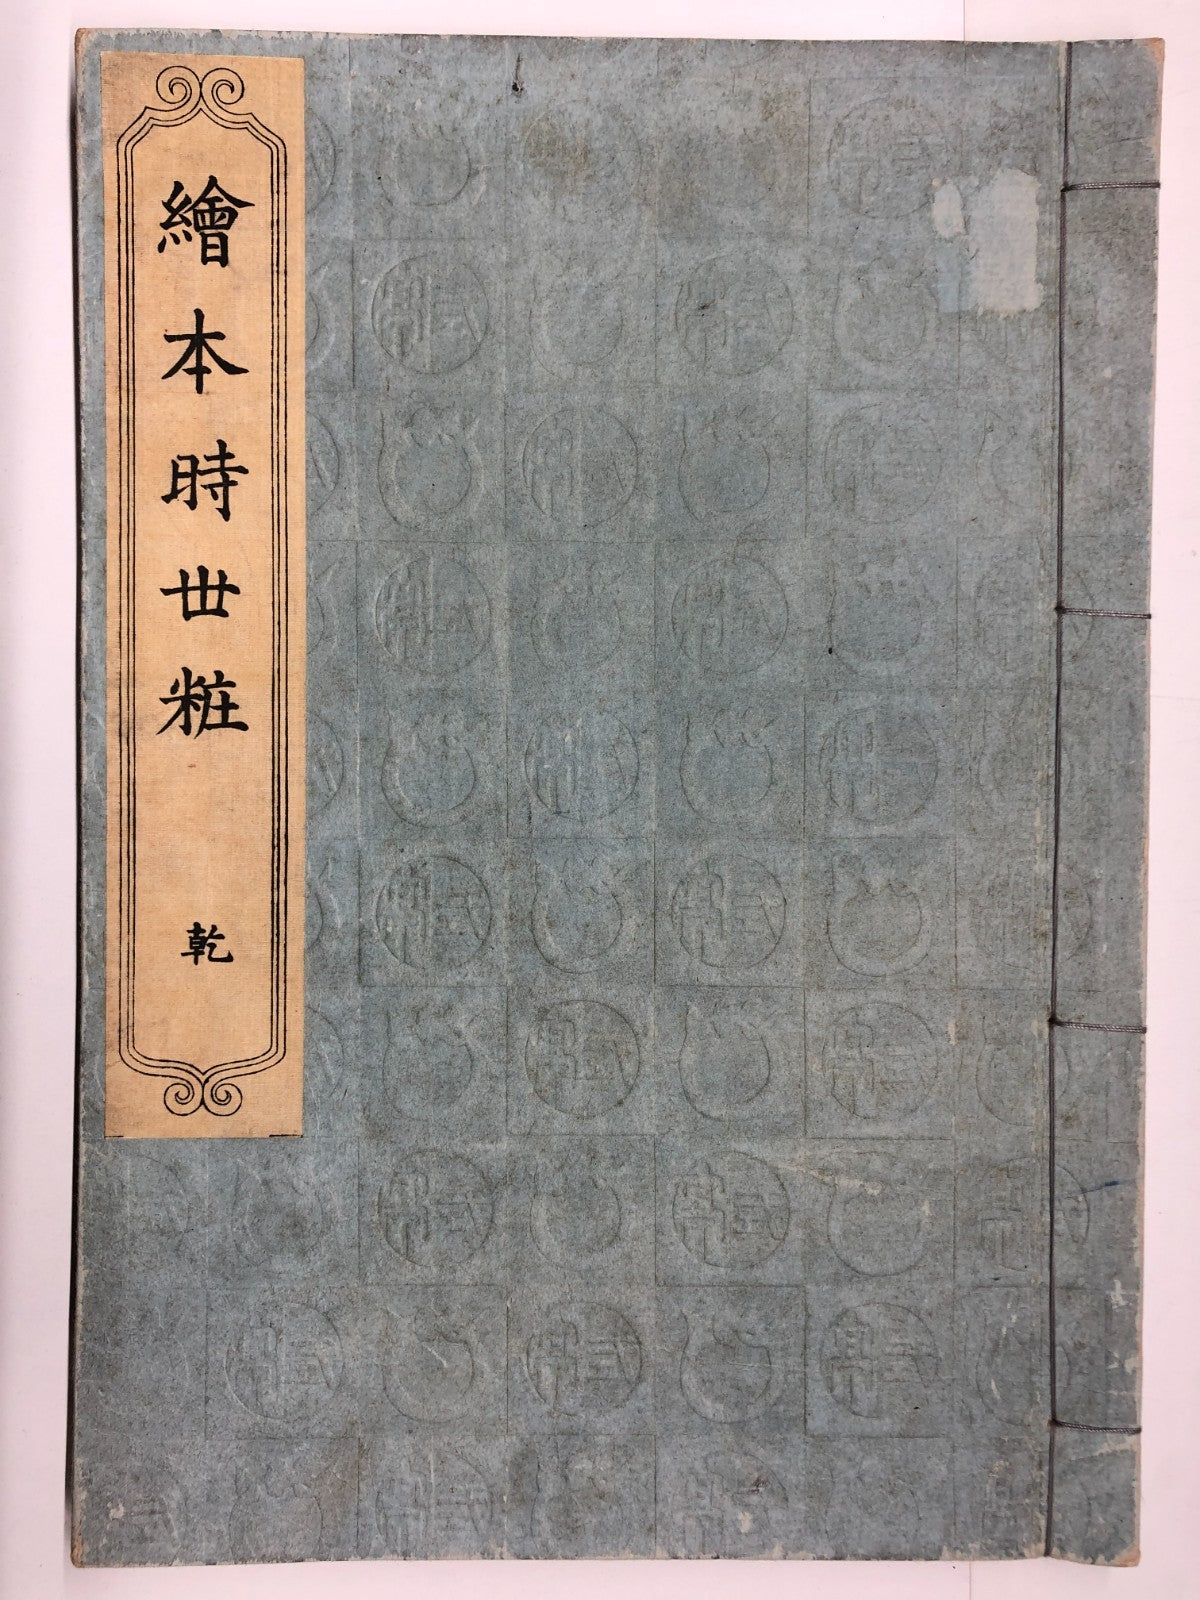 繪本時世粧
乾